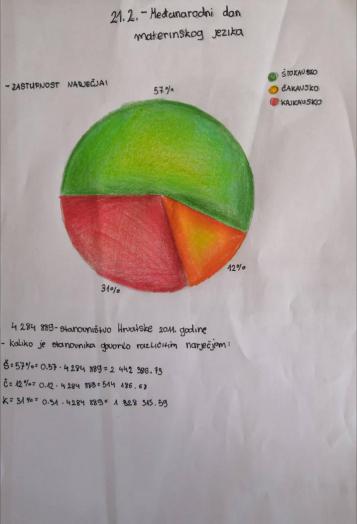 21.2. - Međunarodni dan
materinskog jezika
- ZASTUPNOST NARJEČJA!
57%
ŠTOKAVSKO
ČAKAVSKO
KAJKAVSKO
12%
31%
4 284 889 - stanovništvo Hrvatske 2011. godine
- koliko je stanovnika govorilo različitim narječjem:
Š = 57% = 0.57 · 4 284 889 = 2 442 386.73
Č = 12% = 0.12 · 4 284 889 = 514 186.68
K = 31% = 0.31 · 4 284 889 = 1 328 315.59